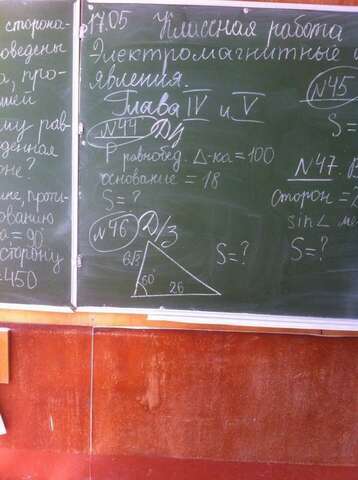 сторона-
оведены
а, про-
шей
му рав
денная
оне?
ине, проти-
ованию
а = 90°
сторону
= 450
17.05 Классная работа
Электромагнитные
явления.
Глава IV и V
№44 Д/
P равнобед. Δ-ка = 100
основание = 18
S = ?
№46 Д/З
6√3
60°
26
S = ?
№45
S =
№47.
сторон =
sin∠
S = ?